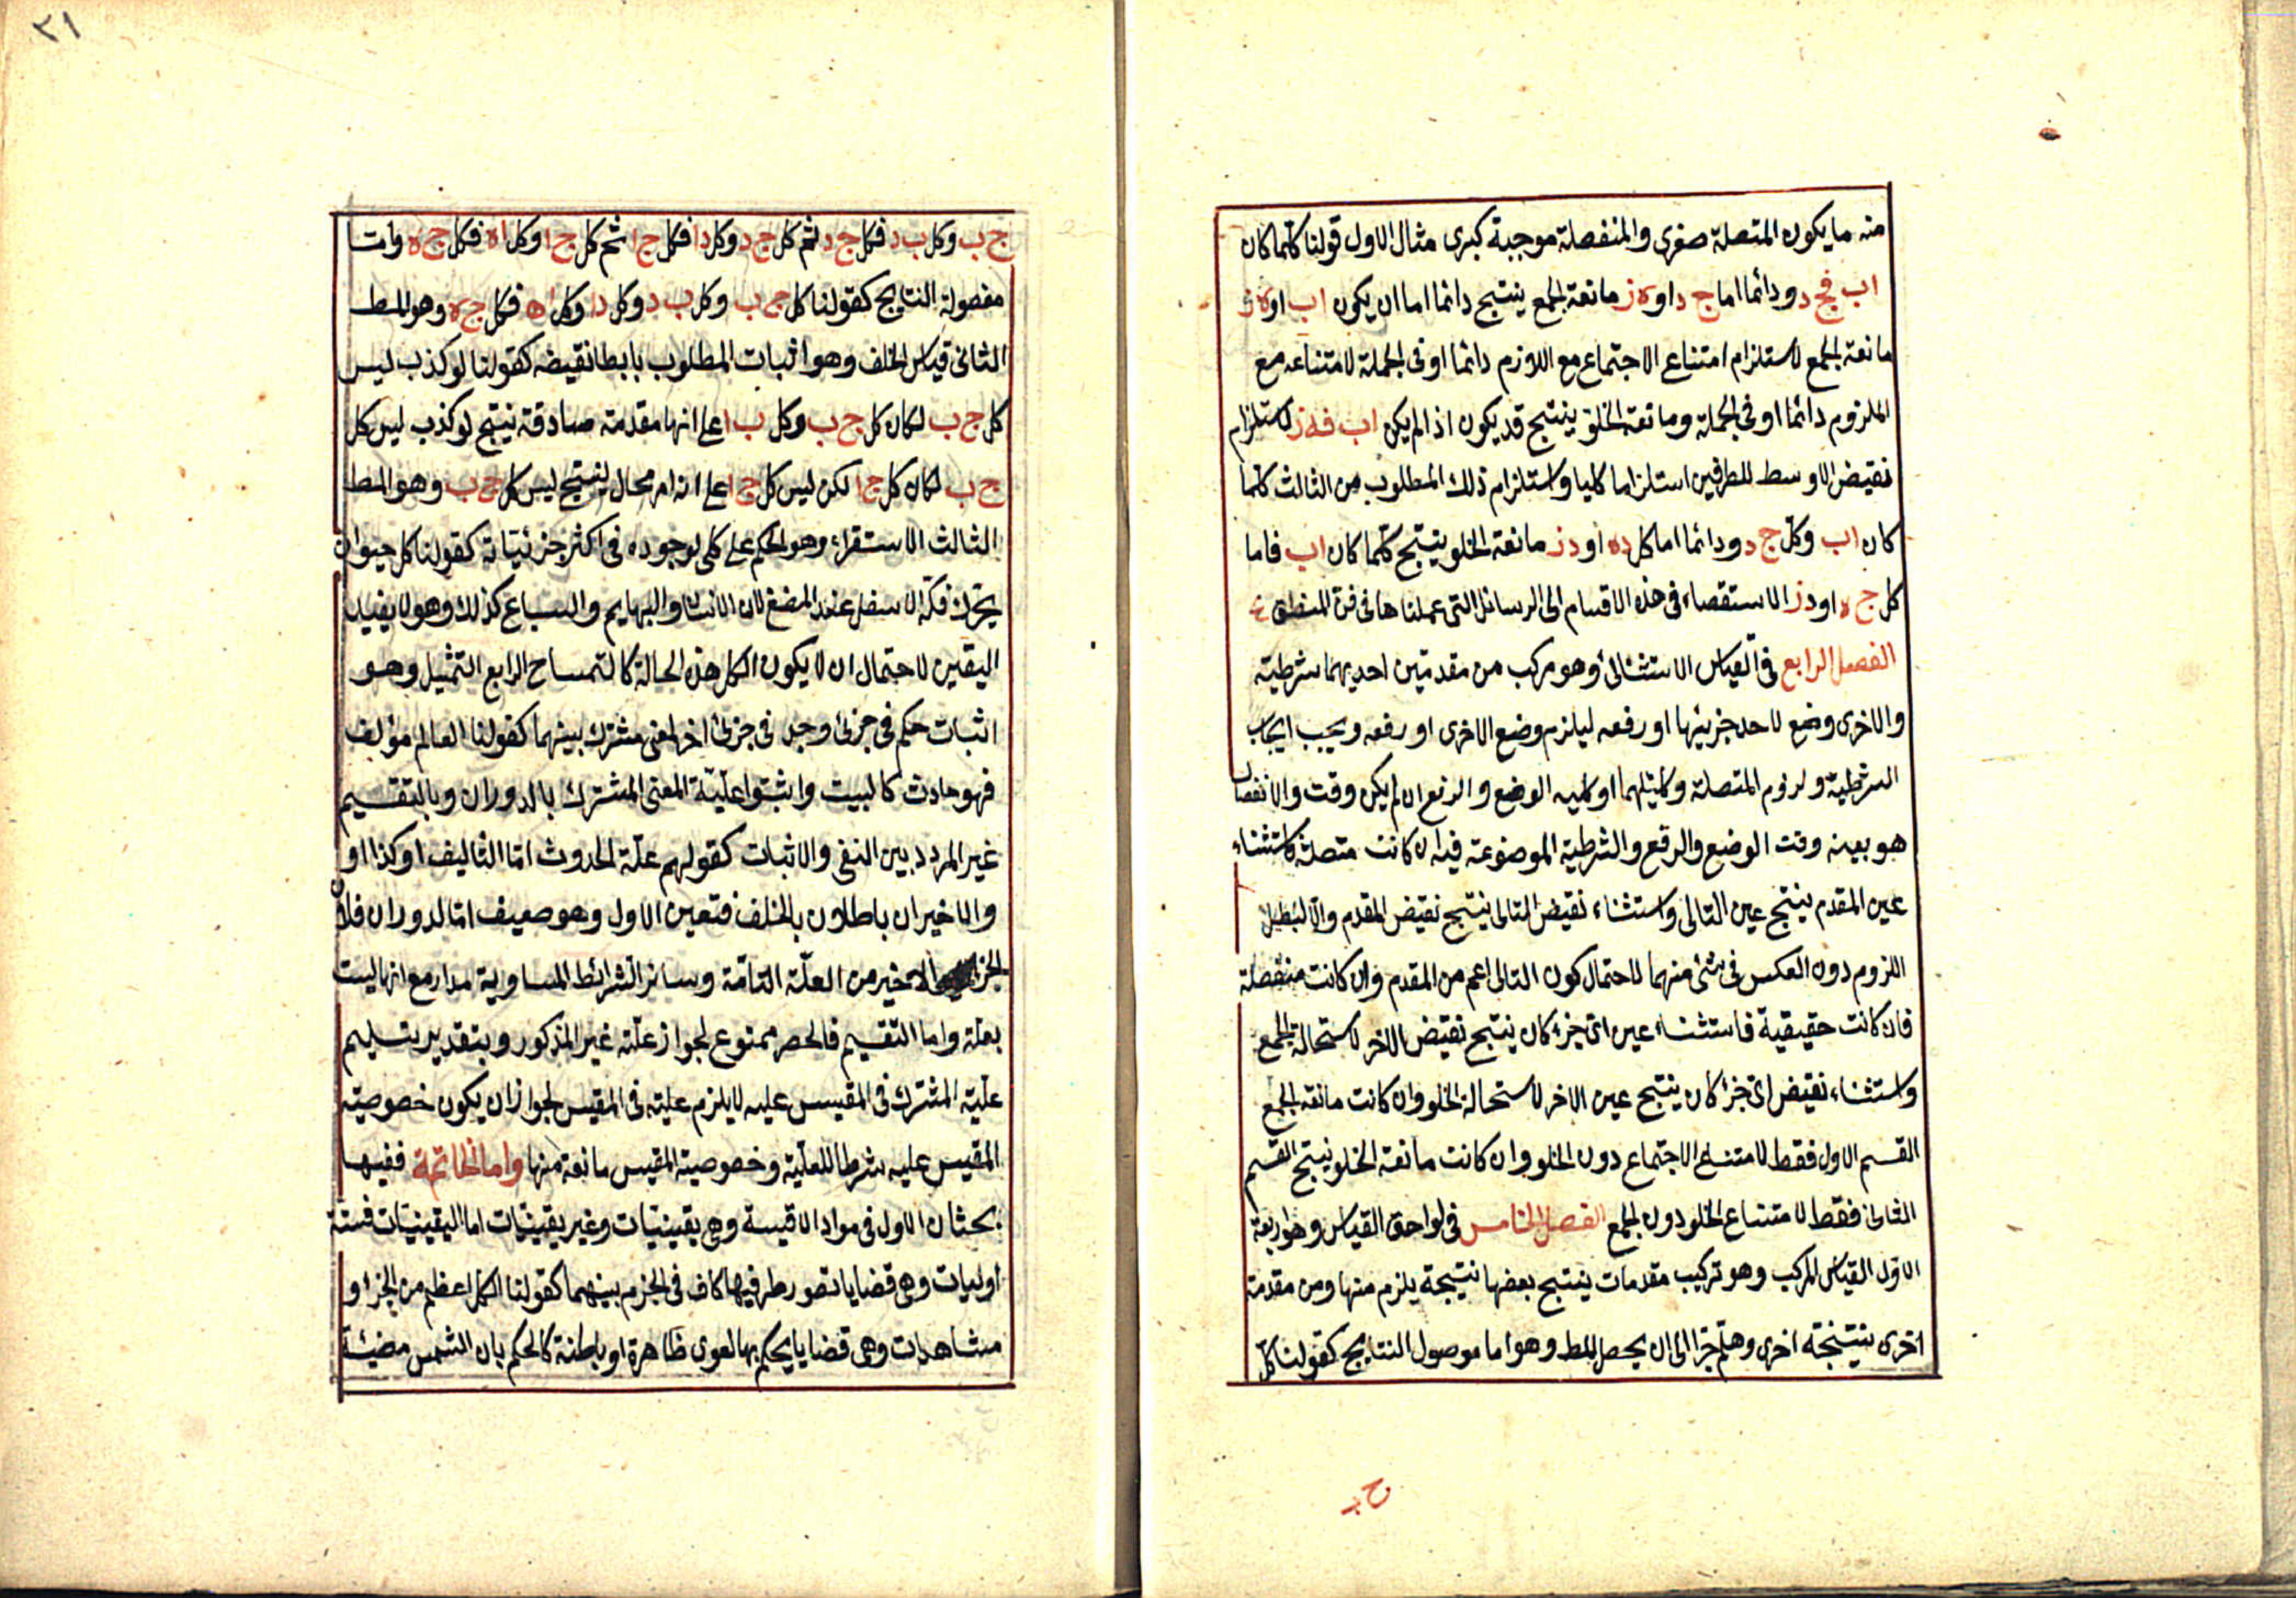 منه ما يكون المتصلة صغرى والمنفصلة موجبة كبرى مثال الاول قولنا كلما كان
اب فج د ودائما اما ج د او ه ز مانعة الجمع ينتج دائما اما ان يكون اب او ه ز
مانعة الجمع لاستلزام امتناع الاجتماع مع اللازم دائما او فى الجملة لامتناعه مع
الملزوم دائما او فى الجملة ومانعة الخلو ينتج قد يكون اذا لم يكن اب فه ز لاستلزام
نقيض الاوسط للطرفين استلزاما كليا واستلزام ذلك المطلوب من الثالث كلما
كان اب وكل ج د ودائما اما كل ده او د ز مانعة الخلو ينتج كلما كان اب فاما
كل ج ه او د ز الاستقصاء فى هذه الاقسام الى الرسائل التى عملناها فى فن المنطق
الفصل الرابع فى القياس الاستثنائى وهو مركب من مقدمتين احديهما شرطية
والاخرى وضع لاحد جزئيها او رفعه ليلزم وضع الاخرى او رفعه ويجب ايجاب
الشرطية ولزوم المتصلة وكليتهما او كلية الوضع والرفع ان لم يكن وقت والانفصال
هو بعينه وقت الوضع والرفع والشرطية الموضوعة فيه ان كانت متصلة فاستثناء
عين المقدم ينتج عين التالى واستثناء نقيض التالى ينتج نقيض المقدم والا لبطل
اللزوم دون العكس فى شئ منهما لاحتمال كون التالى اعم من المقدم وان كانت منفصلة
فان كانت حقيقية فاستثناء عين اى جزء كان ينتج نقيض الاخر لاستحالة الجمع
واستثناء نقيض اى جزء كان ينتج عين الاخر لاستحالة الخلو وان كانت مانعة الجمع
القسم الاول فقط لامتناع الاجتماع دون الخلو وان كانت مانعة الخلو ينتج القسم
الثانى فقط لامتناع الخلو دون الجمع الفصل الخامس فى لواحق القياس وهو اربعة
الاول القياس المركب وهو تركيب مقدمات ينتج بعضها نتيجة يلزم منها ومن مقدمة
اخرى نتيجة اخرى وهلم جرا الى ان يحصل المط وهو اما موصول النتايج كقولنا كل
ج ب
٣١
ج ب وكل ب د فكل ج د ثم كل ج د وكل د ا فكل ج ا ثم كل ج ا وكل ا ه فكل ج ه واما
مفصولة النتايج كقولنا كل ج ب وكل ب د وكل د ا وكل ا ه فكل ج ه وهو المط
الثانى قياس الخلف وهو اثبات المطلوب بابطال نقيضه كقولنا لو كذب ليس
كل ج ب لكان كل ج ب وكل ب ا على انها مقدمة صادقة ينتج لو كذب ليس كل
ج ب لكان كل ج ا لكن ليس كل ج ا على انه امر محال لينتج ليس كل ج ب وهو المط
الثالث الاستقراء وهو الحكم على كلى لوجوده فى اكثر جزئياته كقولنا كل حيوان
يحرك فكه الاسفل عند المضغ لان الانسان والبهايم والسباع كذلك وهو لا يفيد
اليقين لاحتمال ان لا يكون الكل هذه الحالة كالتمساح الرابع التمثيل وهو
اثبات حكم فى جزئ وجد فى جزئ اخر لمعنى مشترك بينهما كقولنا العالم مؤلف
فهو حادث كالبيت واثبتوا علية المعنى المشترك بالدوران وبالتقسيم
غير المردد بين النفى والاثبات كقولهم علة الحدوث اما التاليف او كذا او
والاخيران باطلان بالخلف فتعين الاول وهو ضعيف اما الدوران فلان
الجزء الاخير من العلة التامة وسائر الشرائط المساوية مدار مع انها ليست
بعلة واما التقسيم فالحصر ممنوع لجواز علة غير المذكور وبتقدير تسليم
علية المشترك فى المقيس عليه لا يلزم علية فى المقيس لجواز ان يكون خصوصية
المقيس عليه شرطا للعلية وخصوصية المقيس مانعة منها واما الخاتمة ففيها
بحثان الاول فى مواد الاقيسة وهى يقينيات وغير يقينيات اما اليقينيات فستة
اوليات وهى قضايا تصور طرفيها كاف فى الجزم بينهما كقولنا الكل اعظم من الجزء و
مشاهدات وهى قضايا يحكم بها لقوى ظاهرة او باطنة كالحكم بان الشمس مضيئة